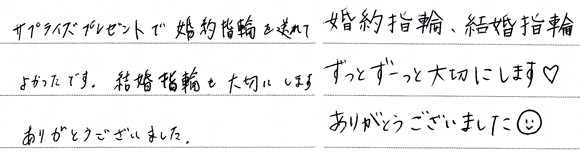 サプライズプレゼントで婚約指輪を送れて
よかったです。結婚指輪も大切にします
ありがとうございました。
婚約指輪、結婚指輪
ずっとずーっと大切にします♡
ありがとうございました☺